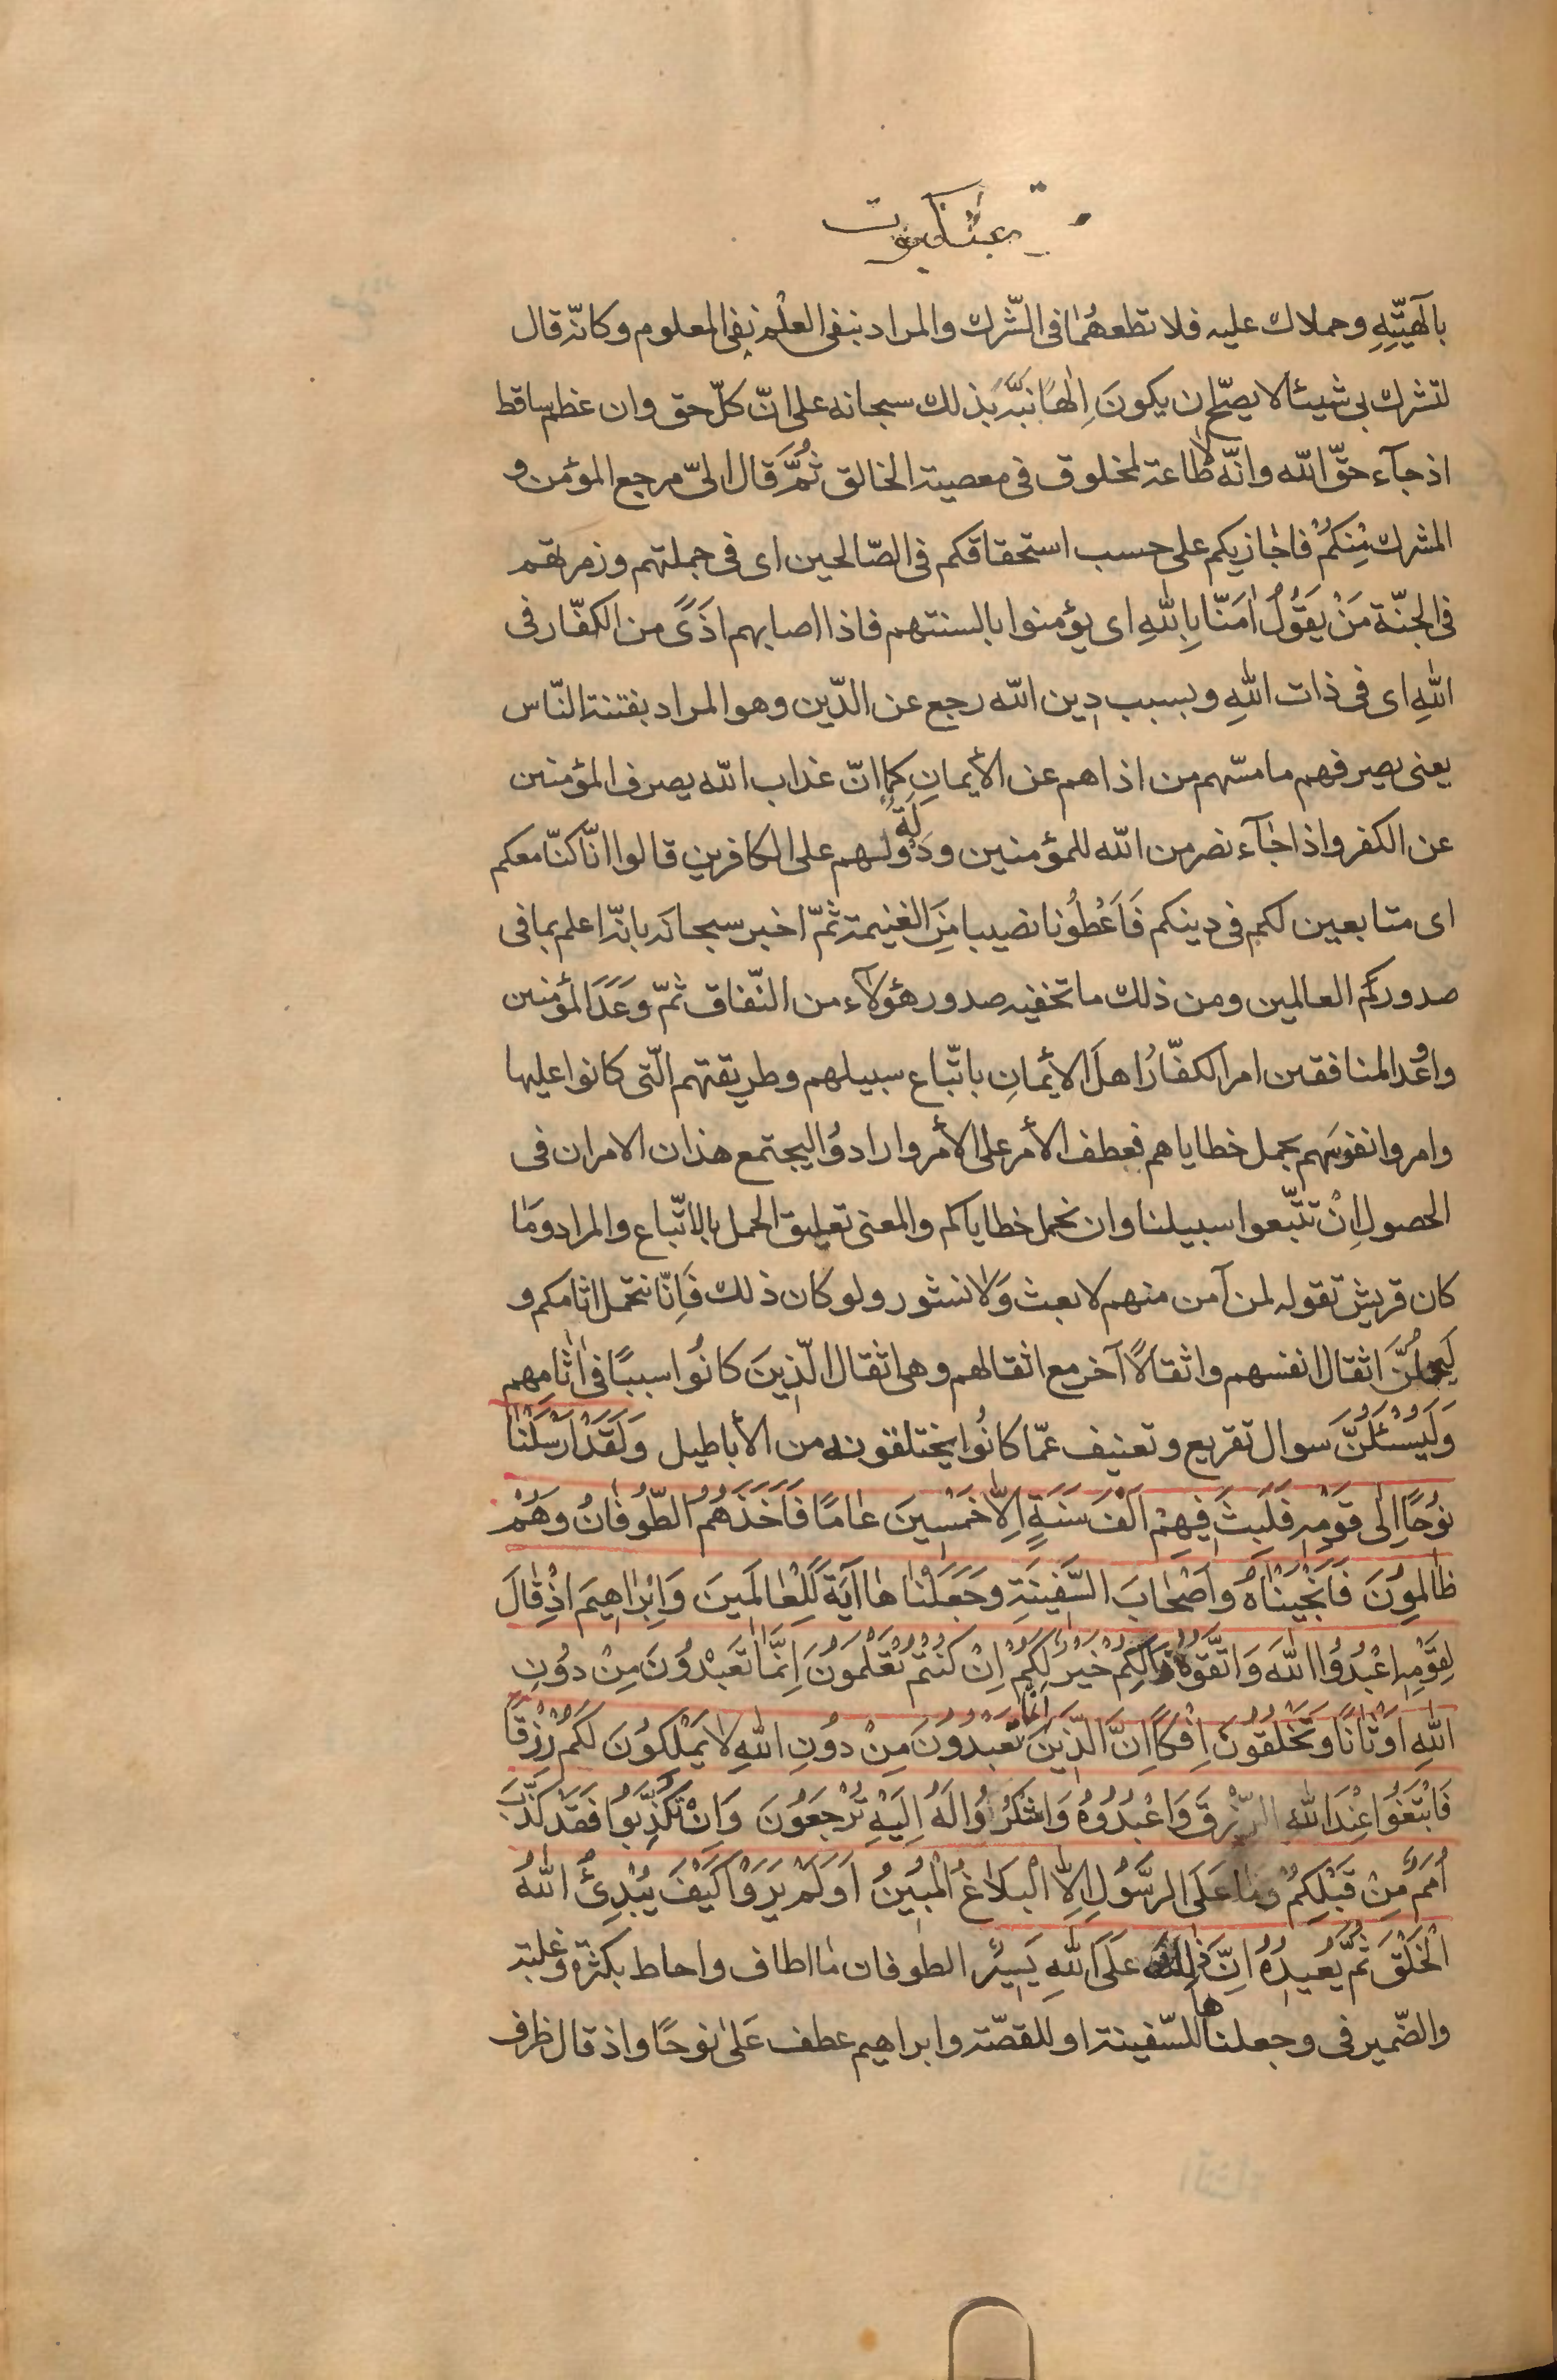 عنكبوت
بآلهيّتِهِ وحملاك عليه فلا تطعهُمٰا فى الشّرك والمراد بنفى العلْم نفى المعلوم وكانّه قال
لتشرك بى شيئا لا يصحّ ان يكونَ اِلٰهًا نبّه بذلك سبحانه على انّ كلّ حق وان عظم ساقط
اذ جآء حقّ اللّه وانّه لا طاعة لمخلوق فى معصية الخالق ثُمَّ قَال الىّ مرجع المؤمن و
المشرك مِنكُمْ فاجٰازيكم على حسب استحقاقكم فى الصّالحين اى فى جملتهم وزمرتهم
فى الجنّة مَنْ يَقُولُ اٰمَنّا بِاللّٰهِ اى يؤمنوا بالسنتهم فاذا اصابهم اَذَىً من الكفّار فى
اللّٰهِ اى فى ذات اللّٰهِ وبسبب دين اللّه رجع عن الدّين وهو المراد بفتنة النّاس
يعنى يصرفهم ما مسّهم من اذاهم عن الأيمانِ كما انّ عذاب اللّه يصرف المؤمنين
عن الكفر واذا جٰآء نصر من اللّه للمؤمنين ودَولَةٌ لهم على الكافرين قالوا انّا كنّا معكم
اى متابعين لكم فى دينكم فَاَعْطُونا نصيبا مِنَ الغنيمة ثمّ اخبر سبحانَه بانّه اعلم بما فى
صدوركم العالمين ومن ذلك ما تخفيه صدور هؤلآء من النّفاق ثمّ وَعَدَ المؤمنين
واوْعد المنافقين امر الكفّارُ اهلَ الأيمانِ باتّباع سبيلهم وطريقتهم الّتى كانوا عليها
وامروا نفوسَهم بحمل خطاياهم فعطف الأمر على الأمر وارادوُا ليجتمع هذان الامران فى
الحصول اِنْ تتّبعوا سبيلنا وان نحمل خطاياكم والمعنى تعليق الحمل بالاتّباع والمراد ومٰا
كان قريش تقوله لمن آمن منهم لا بعث وَلا نشور ولو كان ذلك فَاِنّا نتحمل اثامكم و
ليَحملُنَّ اثقال انفسهم واثقالاً آخر مع اثقالهم وهى اثقال الّذينَ كانُوا سببًا فى اٰثامِهم
وَلَيُسْئَلُنَّ سوال تقريع وتعنيف عمّا كانُوا يختلقونه من الأباطيل وَلَقَدْ اَرْسَلْنٰا
نُوحًا اِلٰى قَومِهِ فَلَبِثَ فِيهِمْ اَلْفَ سَنَةٍ اِلاّٰ خَمْسِينَ عٰامًا فَاَخَذَهُمُ الطّوُفٰانُ وَهُمْ
ظٰالِموُنَ فَاَنْجَيْنٰاهُ وَاَصْحٰابَ السَّفينَةِ وَجَعَلْنٰاهٰا آيَةً لِلْعٰالَمينَ وَاِبْرٰاهيمَ اِذْ قٰالَ
لِقَوْمِهِ اعْبُدُوا اللّٰهَ وَاتَّقُوهُ ذٰلِكُمْ خَيْرٌ لَكُمْ اِنْ كُنْتُمْ تَعْلَمُونَ اِنَّمٰا تَعْبُدُونَ مِنْ دوُنِ
اللّٰهِ اَوْثٰانًا وَتَخْلُقُونَ اِفْكًا اِنَّ الَّذينَ تَعْبُدُونَ مِنْ دوُنِ اللّٰهِ لاٰ يَمْلِكوُنَ لَكُمْ رِزْقًا
فَابْتَغُوا عِنْدَ اللّٰهِ الرِّزْقَ وَاعْبُدُوهُ وَاشْكُرُوُا لَهُ اِلَيْهِ تُرْجَعُونَ وَاِنْ تُكَذِّبُوا فَقَدْ كَذَّبَ
اُمَمٌ مِنْ قَبْلِكُمْ وَمٰا عَلَى الرَّسُولِ اِلاَّ الْبَلاٰغُ الْمُبينُ اَوَلَمْ يَرَوْا كَيْفَ يُبْدِئُ اللّٰهُ
الْخَلْقَ ثُمَّ يُعيدُهُ اِنَّ ذٰلِكَ عَلَى اللّٰهِ يَسيرٌ الطوفان مٰا اطاف واحاط بكثرة وغلبة
والضّمير فى وجعلناها للسّفينة او للقصّة وابراهيم عطف عَلىٰ نوحًا واذ قال ظرف